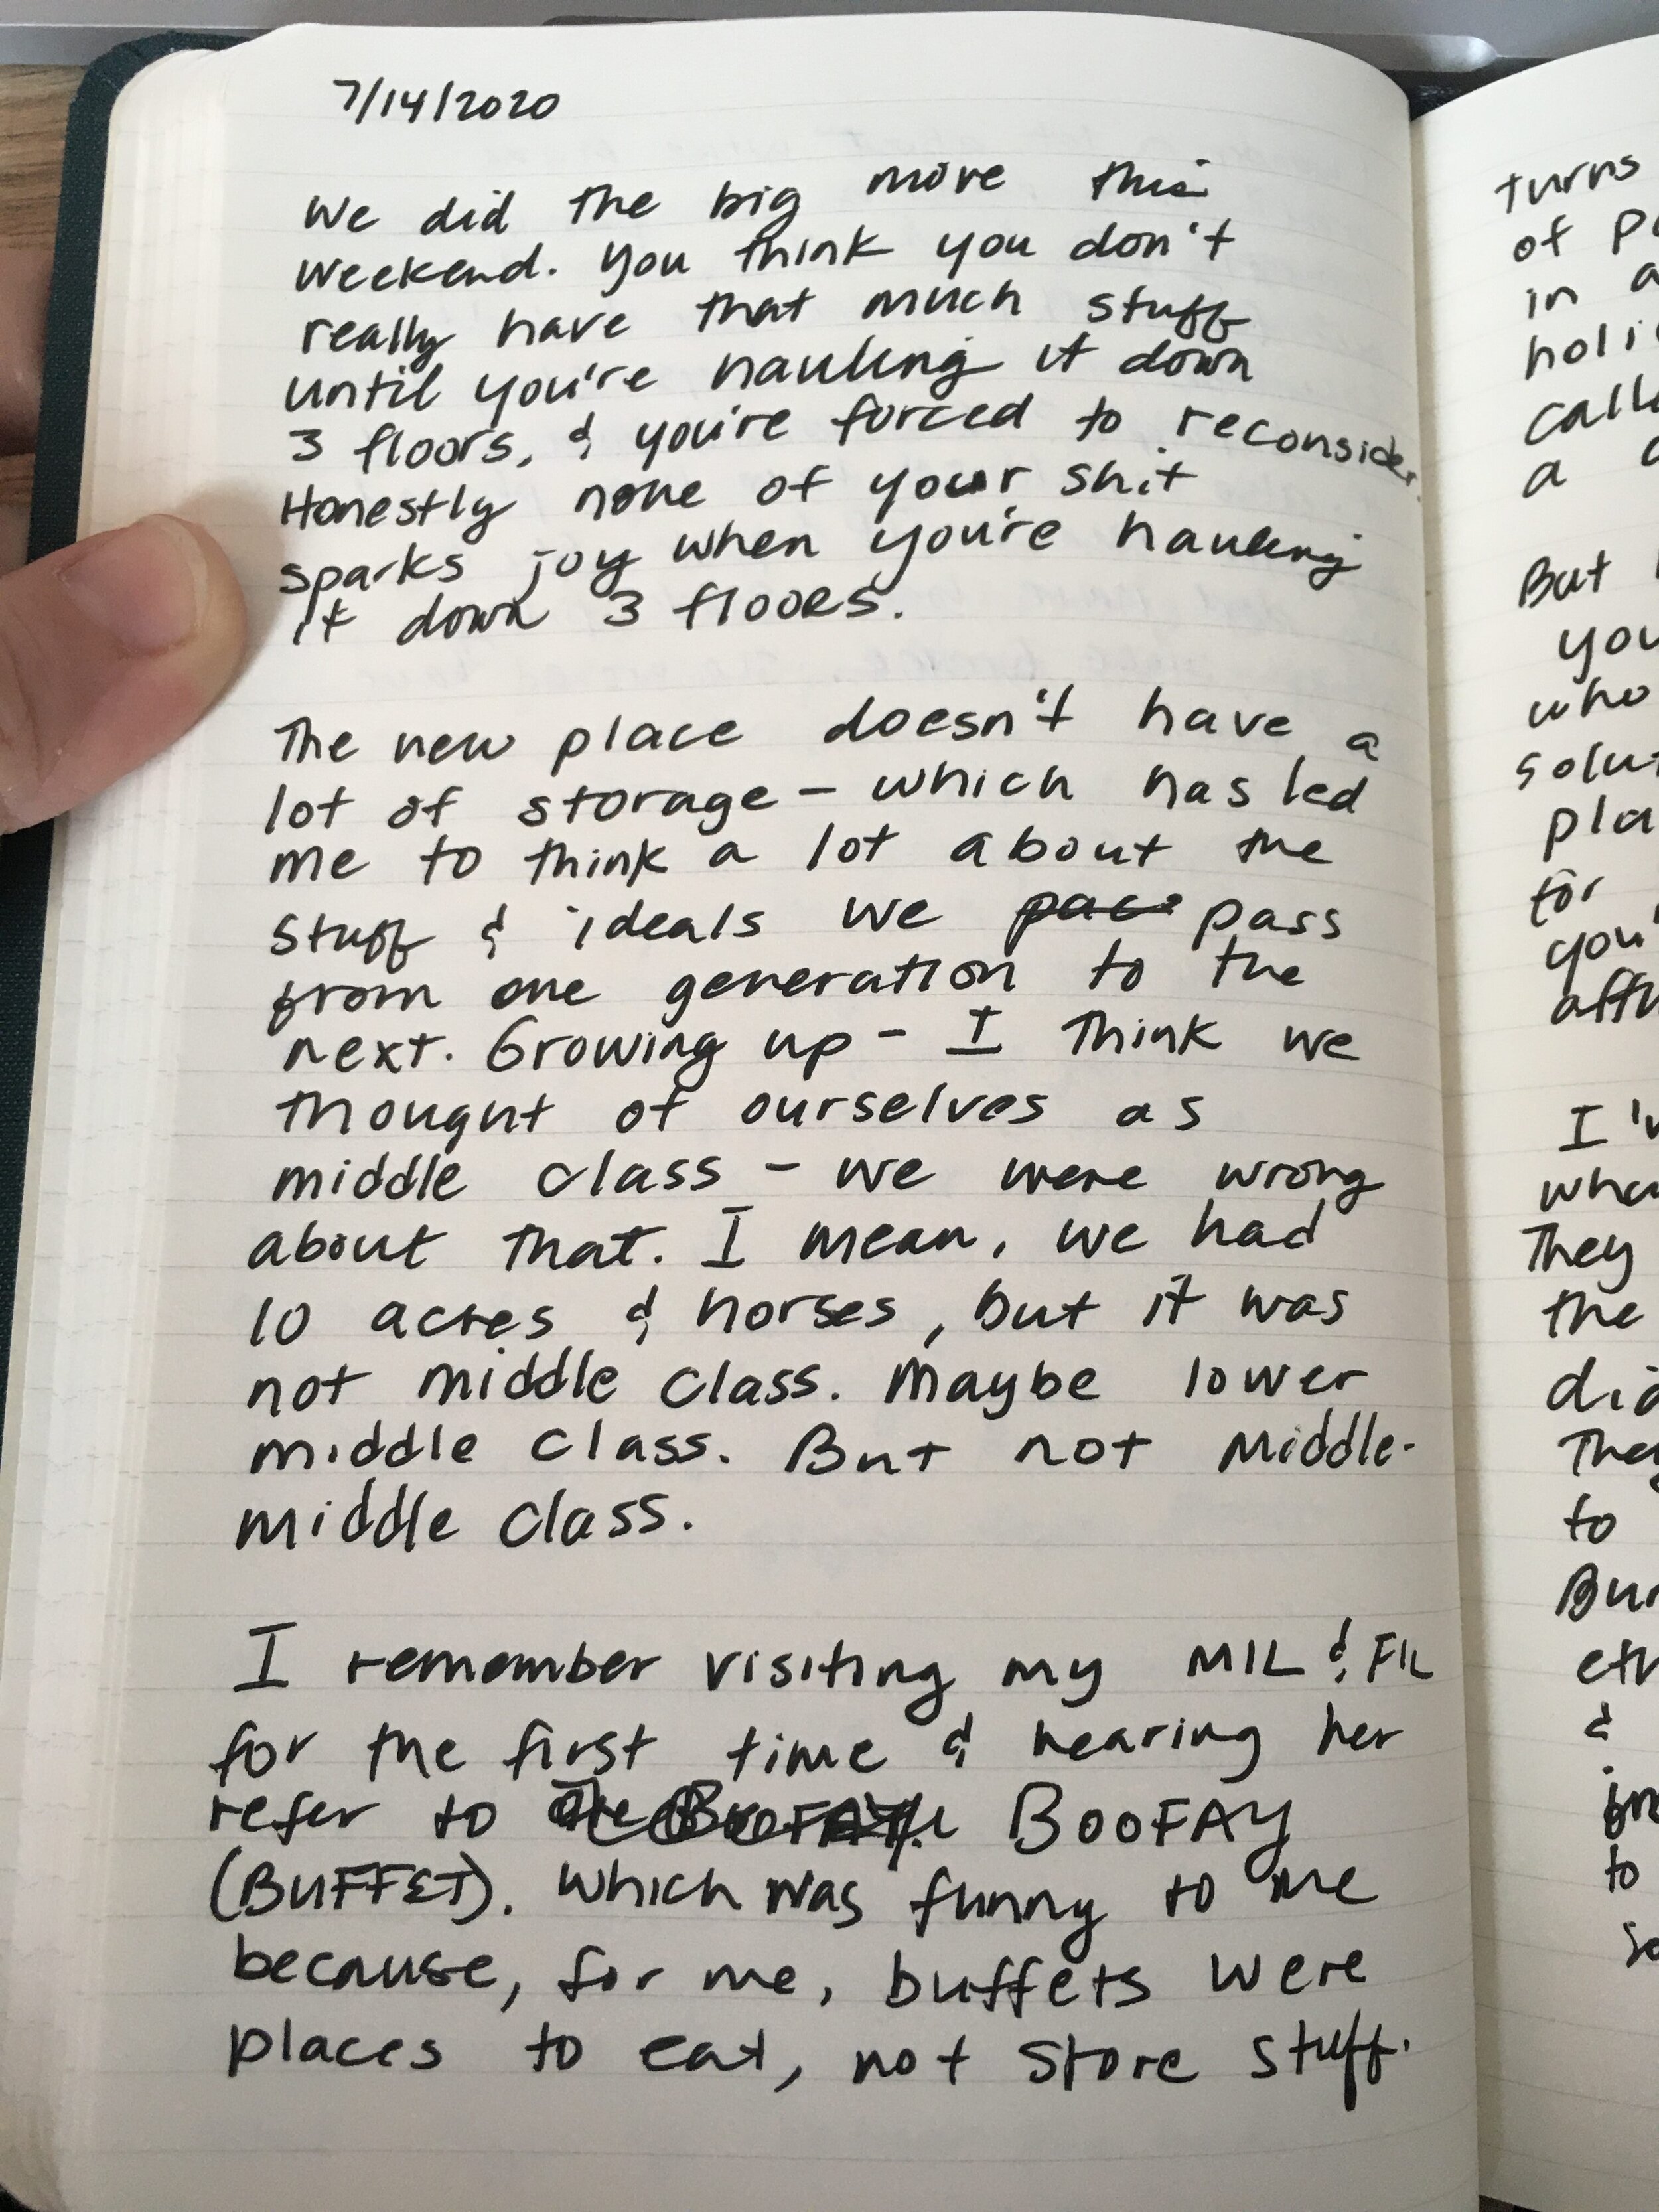 7/14/2020
We did the big move this
weekend. You think you don't
really have that much stuff
until you're hauling it down
3 floors, & you're forced to reconsider.
Honestly none of your shit
sparks joy when you're hauling
it down 3 floors.
The new place doesn't have a
lot of storage - which has led
me to think a lot about the
stuff & ideals we pass
from one generation to the
next. Growing up - I think we
thought of ourselves as
middle class - we were wrong
about that. I mean, we had
10 acres & horses, but it was
not middle class. Maybe lower
middle class. But not middle-
middle class.
I remember visiting my MIL & FIL
for the first time & hearing her
refer to BOOFAY
(BUFFET). Which was funny to me
because, for me, buffets were
places to eat, not store stuff.
turns
of
in
a
But
who
for
They
the
to
&
to